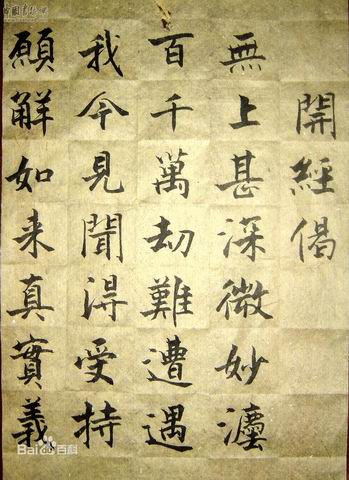 開經偈
無上甚深微妙灋
百千萬劫難遭遇
我今見聞得受持
願解如来真實義
Baidu百科